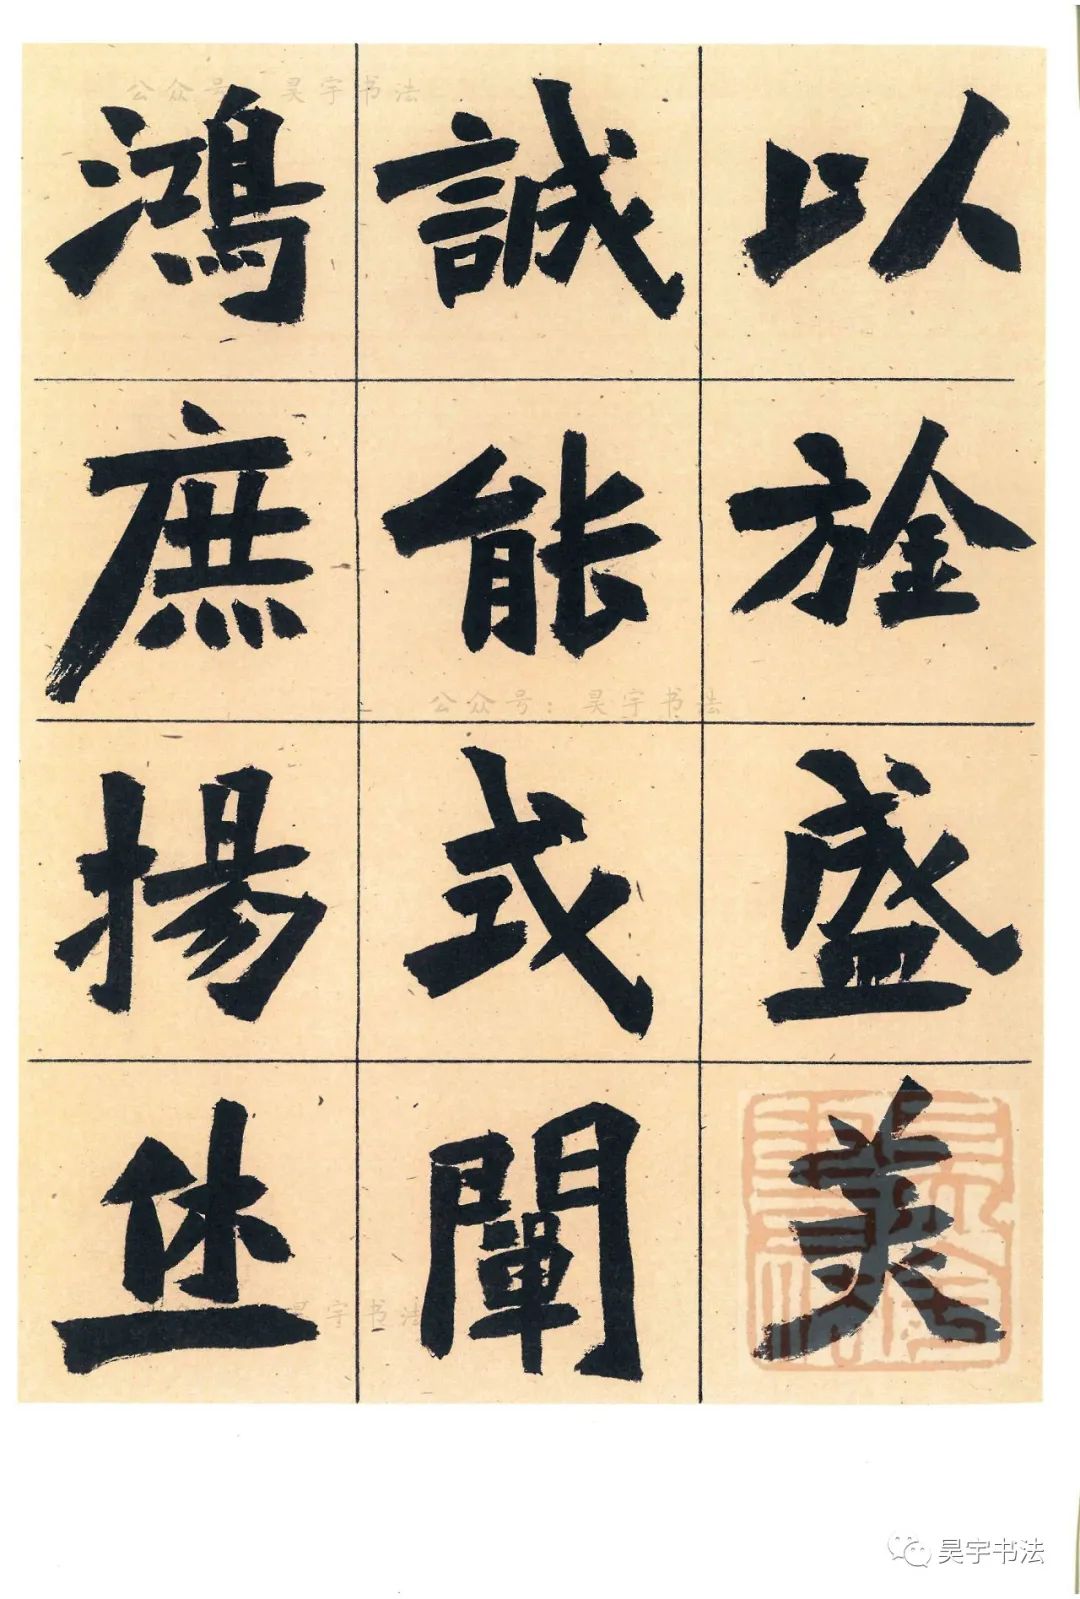 以盛美
誠能式闡
鴻庶揚休
公众号：昊宇书法
公众号：昊宇书法
昊宇书法
昊宇书法